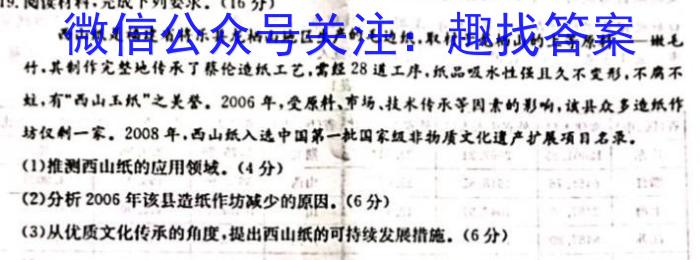 19.阅读材料,完成下列要求。(16分)
微信公众号关注:趣找答案
嫩毛
竹,其制作完整地传承了蔡伦造纸工艺,需经28道工序,纸品吸水性强且久不变形,不腐不
蛀,有“西山玉纸”之美誉。2006年,受原料、市场、技术传承等因素的影响,该县众多造纸作
坊仅剩一家。2008年,西山纸入选中国第一批国家级非物质文化遗产扩展项目名录。
(1)推测西山纸的应用领域。(4分)
(2)分析2006年该县造纸作坊减少的原因。(6分)
(3)从优质文化传承的角度,提出西山纸的可持续发展措施。(6分)